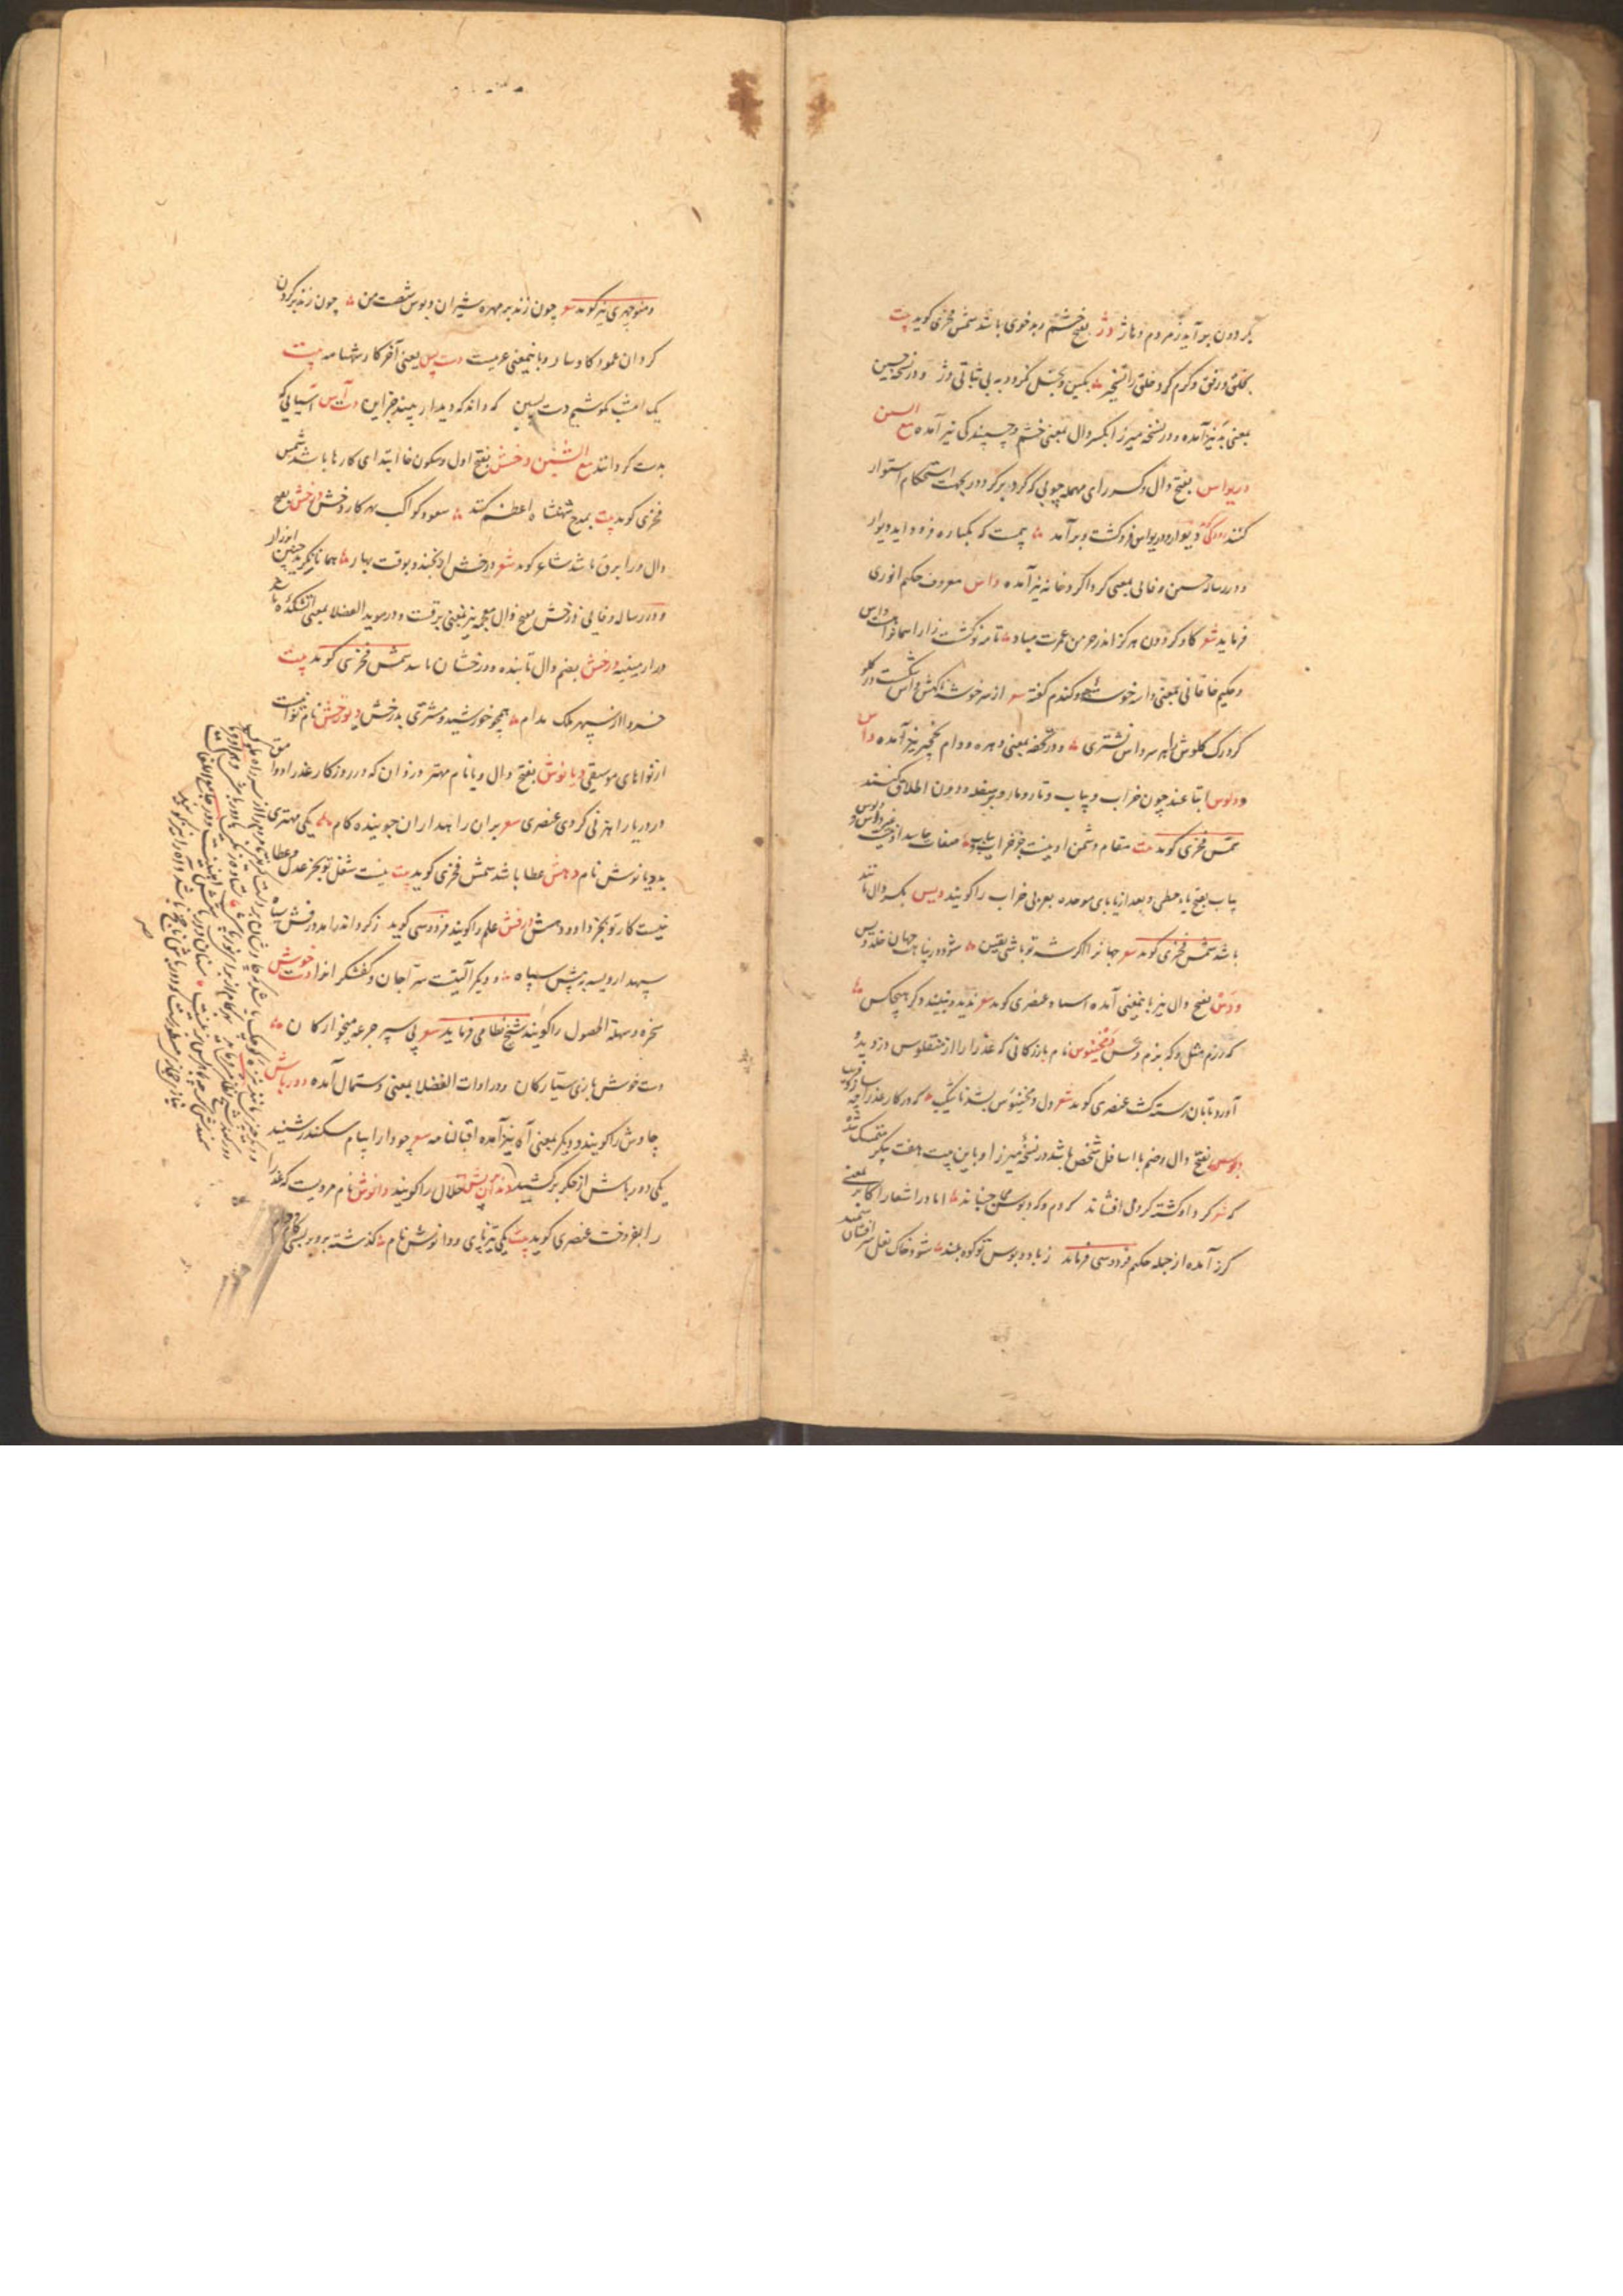 بگردون برآید ز مردم دهاژ دژ بفتح خشم و بدخوی باشد شمس فخری گوید بیت
بخلق و رفق و کرم کرد خلق را تسخیر بکین و بخل نگردد به بی ثباتی دژ و در نسخه حسین
بمعنی بد نیز آمده و در نسخه میرزا بکسر دال بمعنی خشم و چسپندگی نیز آمده مع السین
دریواس بفتح دال و کسر رای مهمله چوبی که گرد بر گرد در بجهت استحکام استوار
کنند رودکی دیوار و دریواس فروگشت و برآمد بیمست که یکباره فرود آید دیوار
و در رساله حسین وفایی بمعنی گرداگرد خانه نیز آمده داس معروف حکیم انوری
فرماید شعر گاو گردون هرگز اندر خرمن عمرت مباد تا مه نو کشت زار آسمانرا هست داس
و حکیم خاقانی بمعنی داسه خوشه جو و گندم گفته شعر از سر خوشه ناگهش داس شکست در گلو
کرد رگ گلوش را بر سر داس نشتری و در تحفه بمعنی دهره و دام نخچیر نیز آمده داس
و دلوس اتباعند چون خراب و یباب و تار و مار و بر سفله و دون اطلاق کنند
شمس فخری گوید بیت مقام دشمن او نیست جز خراب یباب صفات حاسد او نیست غیر داس و دلوس
یباب بفتح یاء حطی و بعد از یا بای موحده بعربی خراب را گویند دیس بکسر دال مانند
باشد شمس فخری گوید شعر جهانرا اگر شه تو باشی یقین شود در پناهت جهان خلد دیس
و دس بفتح دال نیز باینمعنی آمده استاد عنصری گوید شعر ندید و نبیند دگر هیچکس
که رزم مثل و که بزم دس دمخینوس نام بازرگانی که عذرا را از منقلوس دزدیده
آورد تا بآن رسته گشت عنصری گوید شعر دل دمخینوس بشد ناشکیب که در کار عذرا چه سازد فریب
دبوس بفتح دال و ضم با اسافل شخص باشد در نسخه میرزا و باین بیت هفت پیکر متمسک شده
که شعر گرد او گشته گرد می افشاند گه دم و گه دبوس می جنباند اما در اشعار اکابر بمعنی
گرز آمده از جمله حکیم فردوسی فرماید ز باد دبوس تو کوه بلند شود خاک نعل سرافشان سمند
و منوچهری نیز گوید شعر چون زند بر مهره شیران دبوس شصت من چون زند بر گردن
گردان عمود گاوسار و باینمعنی عربیست دست پس یعنی آخر کار شهنامه بیت
یک امشب بکوشیم دست پسین که داند که دیدار بیند جز این دست آس آسیایی که
بدست گردانند مع الشین دخش بفتح اول و سکون خا ابتدای کارها باشد شمس
فخری گوید بیت بمدح شهنشاه اعظم کند سعود کواکب بهر کار دخش درخش بفتح
دال و را برق باشد شاعر گوید شعر درخش ار نخندد بوقت بهار همانا نگرید چنین ابر زار
و در رساله وفایی درخش بفتح ذال معجمه نیز بمعنی برقست و در موید الفضلا بمعنی آتشکده باشد
در ارمینیه درخش بضم دال تابنده و درخشان باشد شمس فخری گوید بیت
خسروا از سپهر ملک مدام همچو خورشید و مشتری بدرخش دیورخش نام نوائیست
از نواهای موسیقی دیانوش بفتح دال و یا نام مهتر دزدان که در روزگار عذرا و وامق
در دریا راهزنی کردی عنصری شعر بران راهداران جوینده کام یکی مهتری
بد دیانوش نام دهش عطا باشد شمس فخری گوید بیت نیست شغل تو بجز عدل و عطا
نیست کار تو بجز داد و دهش درفش علم را گویند فردوسی گوید ز گرد اندر آمد درفش سیاه
سپهدار ویسه به پیش سپاه و دیگر آلتیست سراجان و کفشگران را دست خوش
سخره و سهلة الحصول را گویند شیخ نظامی فرماید شعر پی سپر جرعه میخوارگان
دست خوش بازی سیارگان و در ادات الفضلا بمعنی دستمال آمده دورباش
چاوش را گویند و دیگر بمعنی آه نیز آمده اقبالنامه شعر چو دارا پیام سکندر شنید
یکی دورباش از جگر برکشید دندان پریش خلال را گویند دانوش نام مردیست که عذرا
را بفروخت عنصری گوید بیت یکی تیزپای و دانوش نام گذشته برو بر بسی کام و دام